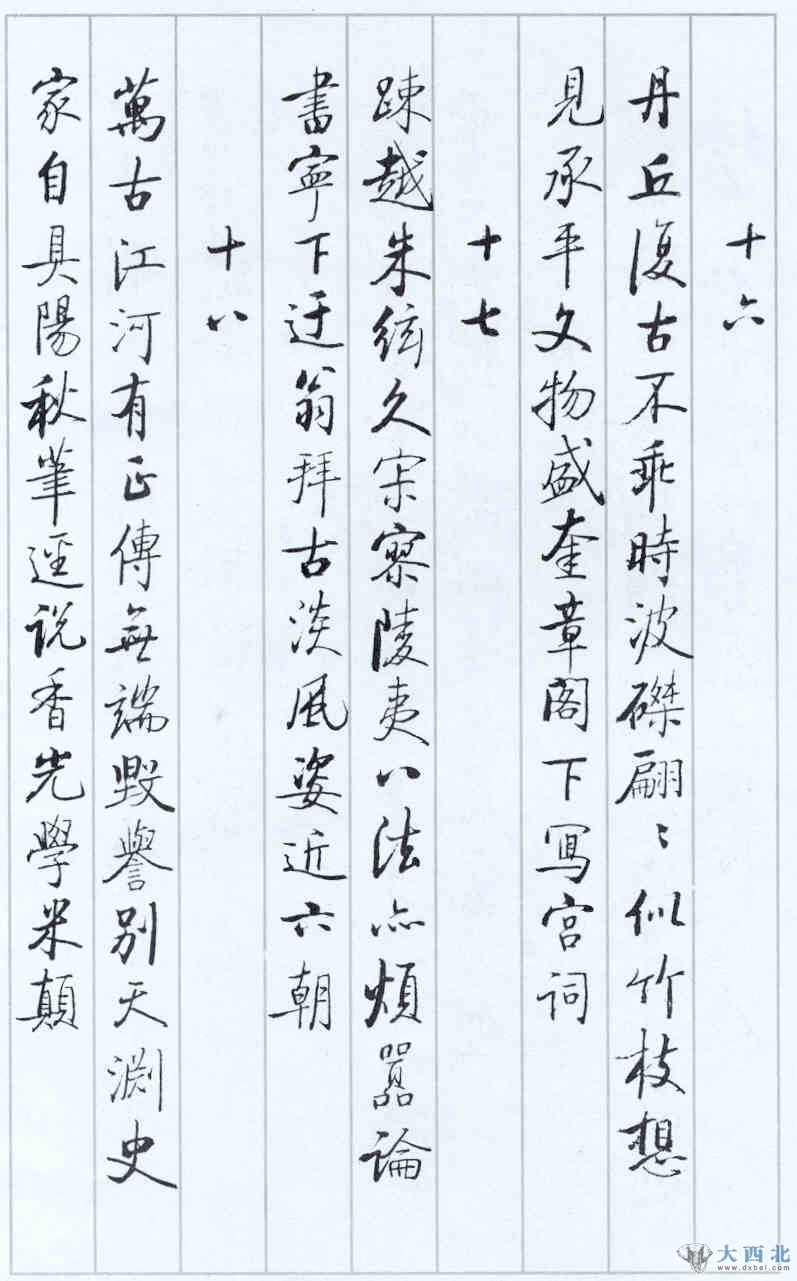 十六
丹丘復古不乖時波磔翩〻似竹枝想
見承平文物盛奎章閣下寫宮詞
十七
疎越朱絃久寂寥陵夷八法亦煩囂論
書寧下迂翁拜古淡風姿近六朝
十八
萬古江河有正傳無端毀譽別天淵史
家自具陽秋筆逕说香光學米顛
大西北
www.dxbei.com